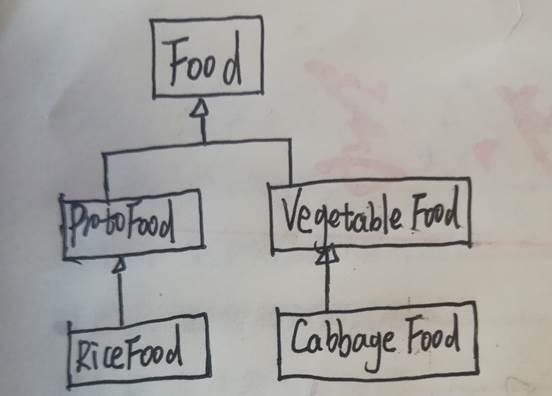 Food
ProtoFood
Vegetable Food
RiceFood
Cabbage Food